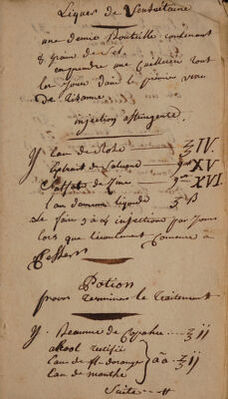 Liquer de Venswitaine
une demie Bouteille contenant
8 grain de Sel.
en prendre une Cuellierée tout
les Jours dans le premier verre
De Tizanne
injection astringente.
℥ Eau de Rose ℥ IV.
Extrait de Saturne gtt XV
Sulfate de Zinc grn XVI.
Lau danum liquide
de faire 3 à 4 injections par Jours
lors que lecoulement Comance à
Cesser
Potion
pour Terminer le Traitement
℥. Beaume de Copahu ℥ ij
alcool rectifié
Eau de fl. dorange āā ℥ ij
Eau de menthe
Suite